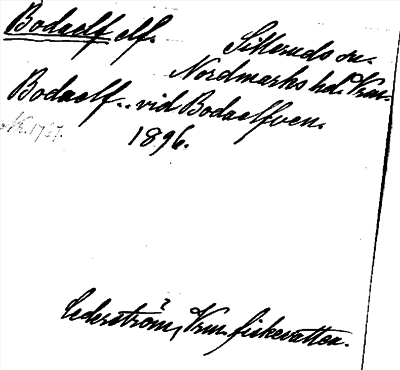 Bodaelf elf.
Silleruds sn.
Nordmarks hd. Vrm.
Bodaelf.. vid Bodaelfven.
1896.
Cederström, Vrm. fiskevatten.